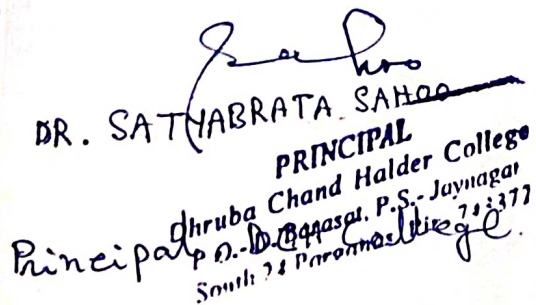 Sahoo
DR. SATYABRATA SAHOO
PRINCIPAL
Dhruba Chand Halder College
P.O.-D. Barasat, P.S.- Jaynagar
South 24 Parganas,
Principal, College.